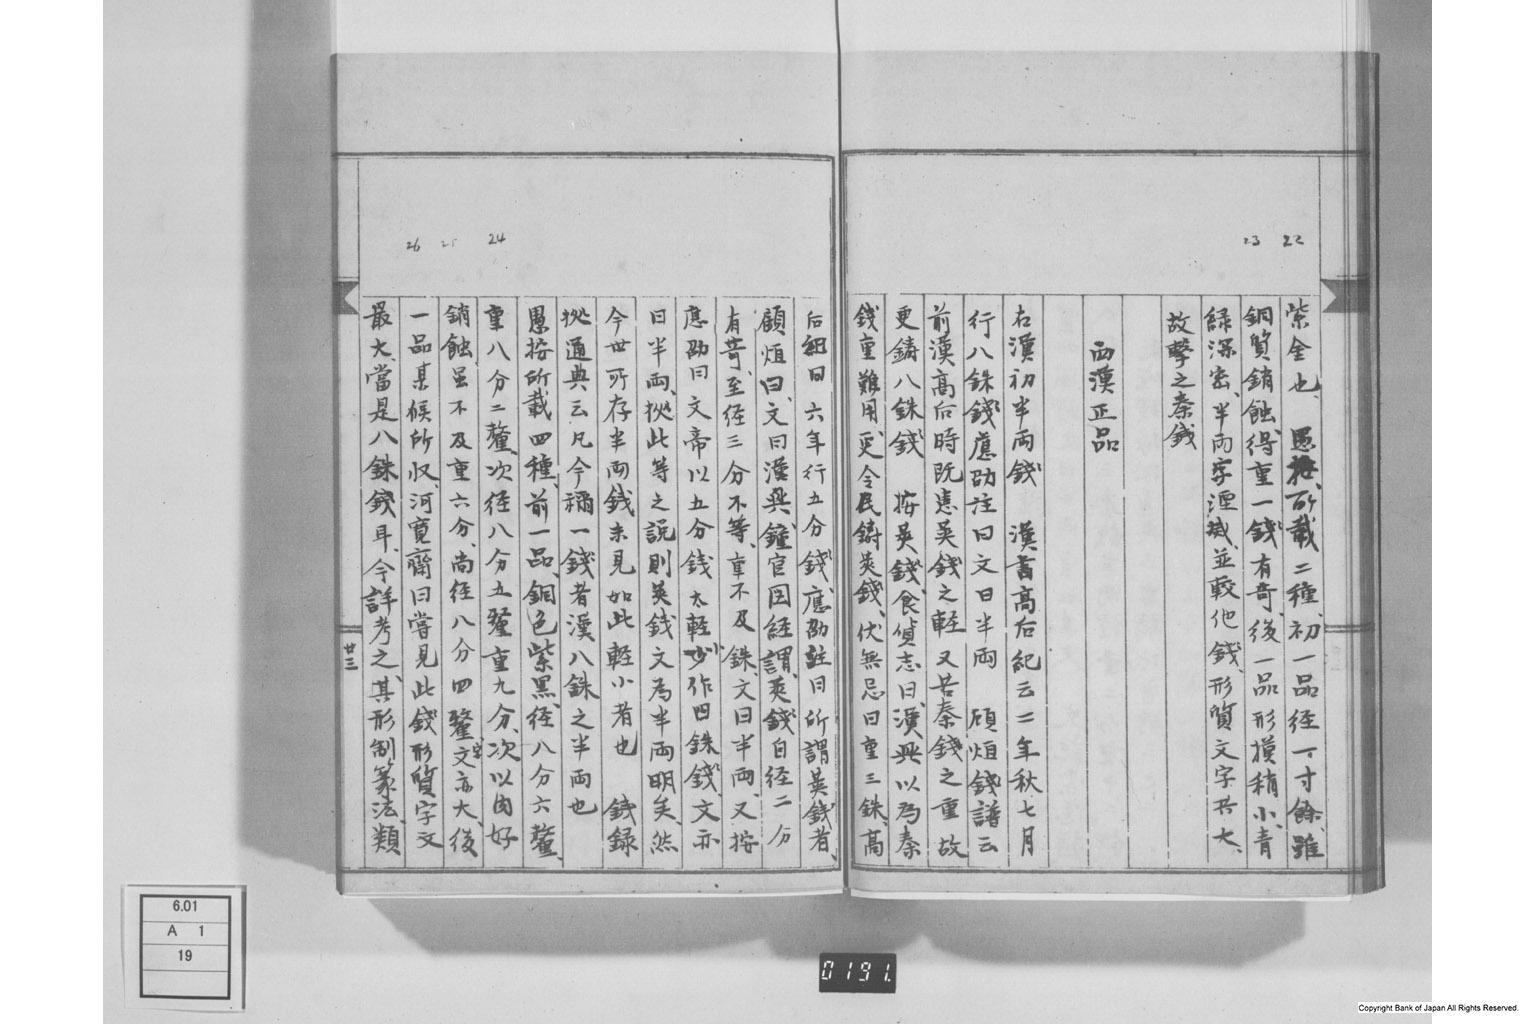 22
23
紫金也、愚按、所載二種、初一品径一寸餘、雖
銅質銷蝕、得重一錢有奇、後一品形摸稍小、青
緑深密、半両字湮滅、並較他錢、形質文字共大、
故撃之秦錢
西漢正品
右漢初半両錢 漢書高后紀云二年秋七月
行八銖錢應劭注曰文曰半両 顧烜錢譜云
前漢高后時既患莢錢之軽又苦秦錢之重故
更鋳八銖錢 按莢錢、食貨志曰、漢興以為秦
錢重難用、更令民鋳莢錢、伏無忌曰重三銖、高
24
25
26
后紀曰、六年行五分錢、應劭註曰所謂莢錢者、
顧烜曰、文曰漢興、鐘官図経謂、莢錢自径二分
有奇、至径三分不等、重不及銖、文曰半両、又按
應劭曰文帝以五分銭太軽小作四銖錢、文亦
曰半両、拠此等之説則莢銭文為半両明矣、然
今世所存半両銭未見如此軽小者也 銭録
拠通典云凡今稱一錢者漢八銖之半両也
愚按所載四種、前一品、銅色紫黒、径八分六釐、
重八分二釐、次径八分五釐重九分、次以肉好
銷蝕、虽不及重六分、尚径八分四釐文字亦大、後
一品某候所収、河寛齋曰嘗見此錢形質字文
最大、當是八銖錢耳、今詳考之、其形制篆法、類
廿三
6.01
A 1
19
0191.
Copyright Bank of Japan All Rights Reserved.